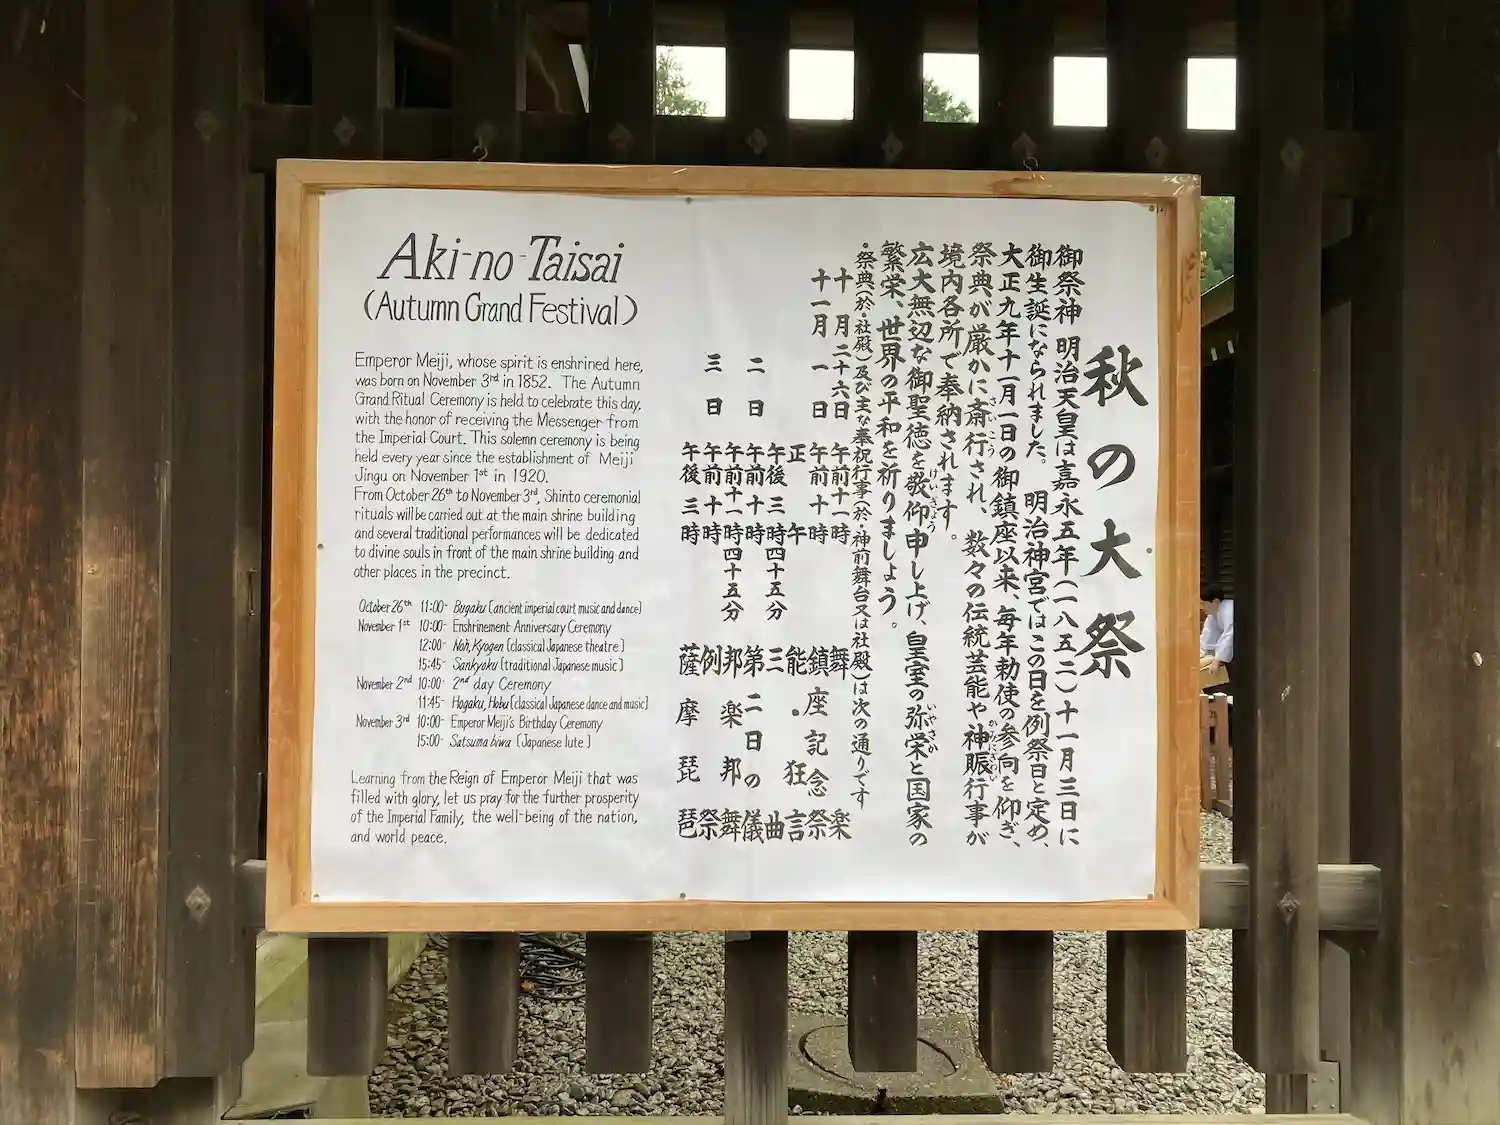 Aki-no-Taisai
(Autumn Grand Festival)
Emperor Meiji, whose spirit is enshrined here,
was born on November 3rd in 1852. The Autumn
Grand Ritual Ceremony is held to celebrate this day,
with the honor of receiving the Messenger from
the Imperial Court. This solemn ceremony is being
held every year since the establishment of Meiji
Jingu on November 1st in 1920.
From October 26th to November 3rd, Shinto ceremonial
rituals will be carried out at the main shrine building
and several traditional performances will be dedicated
to divine souls in front of the main shrine building and
other places in the precinct.
October 26th 11:00- Bugaku [ancient imperial court music and dance]
November 1st 10:00- Enshrinement Anniversary Ceremony
12:00- Noh, Kyogen [classical Japanese theatre]
15:45- Sankyoku [traditional Japanese music]
November 2nd 10:00- 2nd day Ceremony
11:45- Hogaku, Hobu [classical Japanese dance and music]
November 3rd 10:00- Emperor Meiji's Birthday Ceremony
15:00- Satsuma biwa [Japanese lute]
Learning from the Reign of Emperor Meiji that was
filled with glory, let us pray for the further prosperity
of the Imperial Family, the well-being of the nation,
and world peace.
秋の大祭
御祭神 明治天皇は嘉永五年(一八五二)十一月三日に
御生誕になられました。 明治神宮ではこの日を例祭日と定め、
大正九年十一月一日の御鎮座以来、毎年勅使の参向を仰ぎ、
祭典が厳かに斎行され、数々の伝統芸能や神賑行事が
さいこう
かみにぎわい
境内各所で奉納されます。
広大無辺な御聖徳を敬仰申し上げ、皇室の弥栄と国家の
けいぎょう
いやさか
繁栄、世界の平和を祈りましょう。
・祭典(於・社殿)及び主な奉祝行事(於・神前舞台又は社殿)は次の通りです
十月二十六日 午前十一時 舞楽
十一月一日 午前十時 鎮座記念祭
正午 能・狂言
午後三時四十五分 三曲
二日 午前十時 第二日の儀
午前十一時四十五分 邦楽邦舞
三日 午前十時 例祭
午後三時 薩摩琵琶